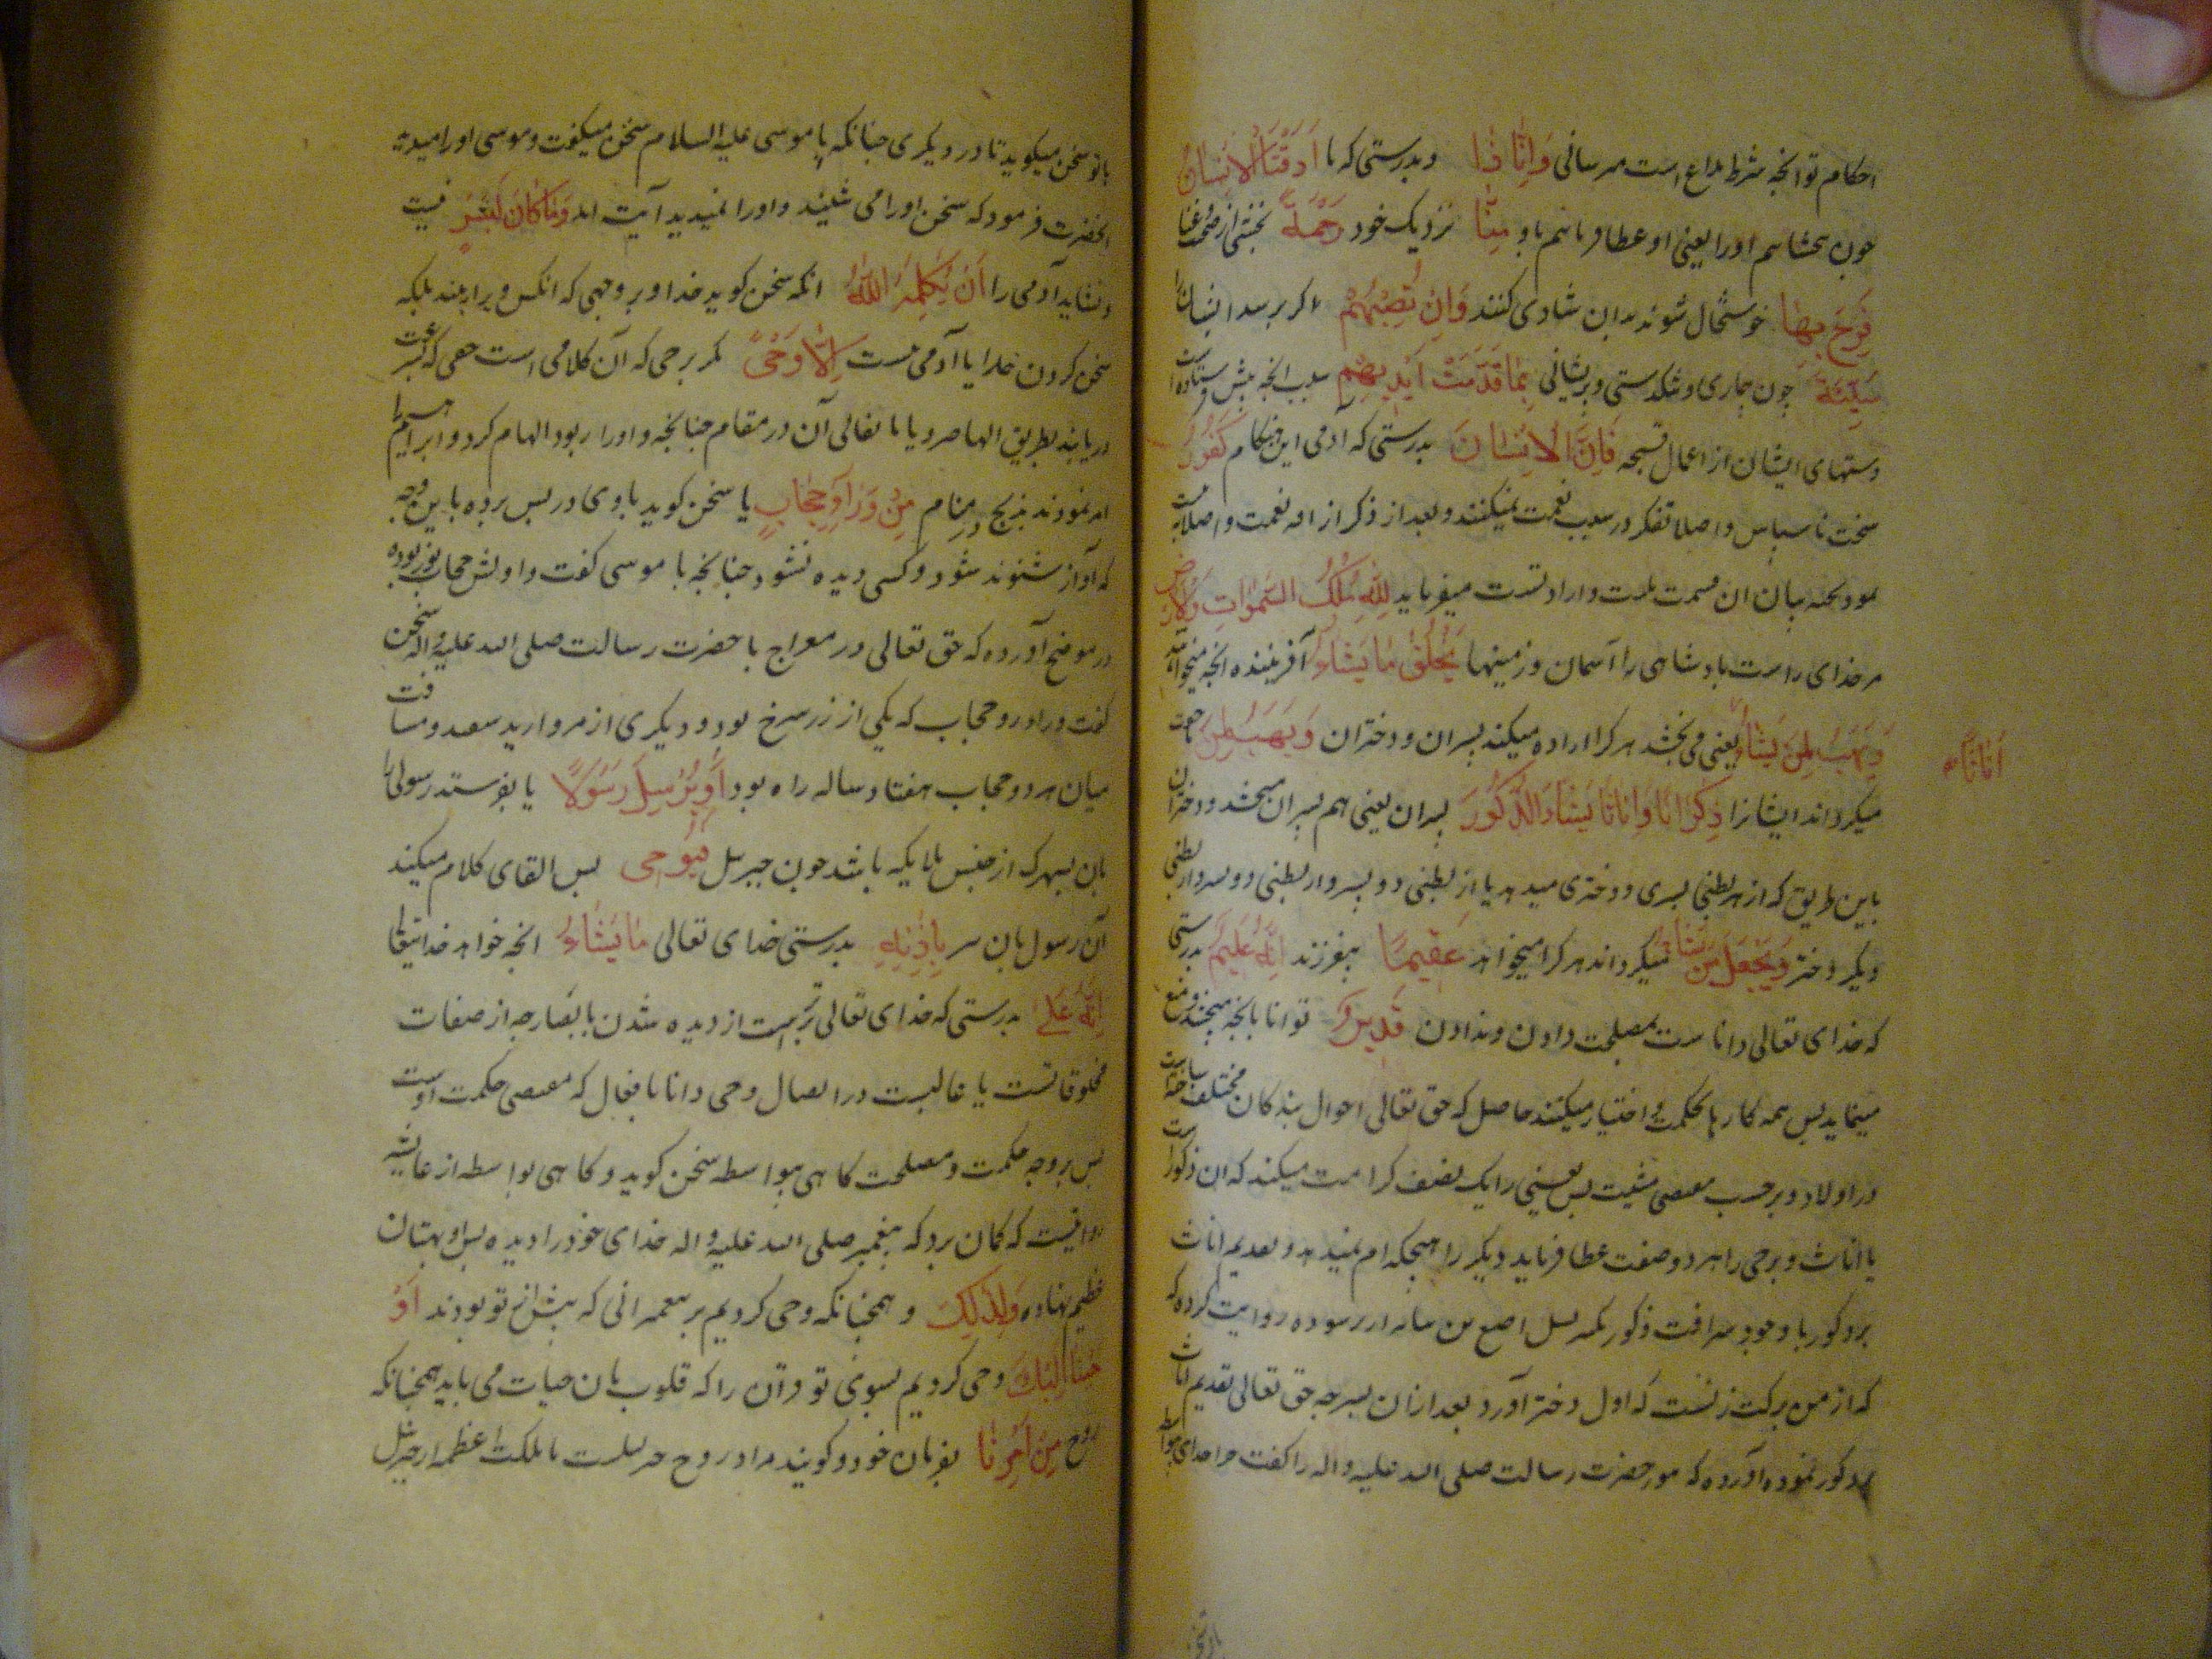 احکام تو انچه شرط بلاغ است میرسانی وَاِنَّا اِذَا و بدرستی که ما اَذَقْنَا الْاِنْسَانَ
چون بچشانیم او را یعنی او عطا فرمائیم باو مِنَّا نزدیک خود رَحْمَةً بخششی از صحت و غنا
فَرِحَ بِهَا خوشحال شوند بدان شادی کنند وَاِنْ تُصِبْهُمْ و اگر برسد ایشان را
سَيِّئَةٌ چون بیماری و تنکدستی و پریشانی بِمَا قَدَّمَتْ اَيْدِيهِمْ بسبب انچه پیش فرستاده است
دستهای ایشان از اعمال قبیحه فَاِنَّ الْاِنْسَانَ بدرستی که آدمی این هنکام كَفُورٌ
سخت ناسپاس و اصلا تفکر در سبب نعمت نمیکنند و بعد از ذکر نعمت و
میفرماید لِلّٰهِ مُلْكُ السَّمٰوَاتِ وَالْاَرْضِ
مر خدای راست بادشاهی آسمان و زمینها يَخْلُقُ مَا يَشَاءُ آفریننده انچه میخواهد
وَيَهَبُ لِمَنْ يَشَاءُ یعنی می بخشد هر کرا اراده میکند پسران و دختران وَيَهَبُ لِمَنْ
اِنَاثًا
میکرداند ایشانرا ذُكْرَانًا وَاِنَاثًا يَشَاءُ الذُّكُورَ پسران یعنی هم پسران میبخشد و دختران
باین طریق که از هر بطنی پسری و دختری میدهد یا از بطنی دو پسر و از بطنی
دیکر دختر وَيَجْعَلُ مَنْ يَشَاءُ میکرداند هر کرا میخواهد عَقِيمًا بیفرزند اِنَّهُ عَلِيمٌ بدرستی
که خدای تعالی داناست بمصلحت دادن و ندادن قَدِيرٌ توانا بانچه میبخشد و منع
مینماید پس همه کارها بحکمت و اختیار میکنند حاصل که حق تعالی احوال بندکان مختلف
در اولاد و بر حسب مقتضی مشیت پس بعضی را یک صنف کرامت میکند که ان ذکور است
یا اناث و برخی را هر دو صنف عطا فرماید و دیکر را هیچکدام نمیدهد و تقدیم اناث
بر ذکور با وجود شرافت ذکور روایت کرده که
که از من برکت زنست که اول دختر آورد و بعد ازان پسر چه حق تعالی تقدیم اناث
بر ذکور نموده آورده که حضرت رسالت صلی الله علیه و اله را گفت
با تو سخن میکوید تا در دیکری چنانکه با موسی علیه السلام سخن میکفت و موسی او را میدید
انحضرت فرمود که سخن او را می شنید و او را نمیدید آیت امد وَمَا كَانَ لِبَشَرٍ نیست
و نشاید آدمی را اَنْ يُكَلِّمَهُ اللّٰهُ انکه سخن کوید خدا او بر وجهی که انکس ویرا بیند بلکه
سخن کردن خدا با آدمی نیست اِلَّا وَحْيًا مکر بوحی که آن کلامی است خفی که بسرعت
دریابند بطریق الهام در مقام چنانچه الهام کرد و ابراهیم را
امر نمودند بذبح در منام مِنْ وَرَاءِ حِجَابٍ یا سخن کوید با وی در پس پرده باین وجه
که آواز شنوند شود و کسی دیده نشود چنانچه با موسی کفت و او پس حجاب نور بوده
در موضح آورده که حق تعالی در معراج با حضرت رسالت صلی الله علیه و اله سخن
کفت در او دو حجاب که یکی از زر سرخ بود و دیکری از مروارید سفید و مسافت
میان هر دو حجاب هفتاد ساله راه بود اَوْ يُرْسِلَ رَسُولًا یا بفرستد رسولی را
از جنس ملایکه باشد چون جبرئیل فَيُوحِيَ پس القای کلام میکند
آن رسول بان بِاِذْنِهِ بدرستی خدای تعالی مَا يَشَاءُ انچه خواهد خدایتعالی
اِنَّهُ عَلِيٌّ بدرستی که خدای تعالی برتر است از دیده شدن بابصار چه از صفات
مخلوقاتست یا غالبست در ایصال وحی دانا بافعال که مقتضی حکمت اوست
پس بر وجه حکمت و مصلحت کاهی بیواسطه سخن کوید و کاهی بواسطه از عایشه
روایت که کمان برد که پیغمبر صلی الله علیه و اله خدای خود را دیده پس او بهتان
عظیم نهاده وَكَذٰلِكَ و همچنانکه وحی کردیم بر پیغمبرانی که پیش از تو بودند اَوْ
حَيْنَا اِلَيْكَ وحی کردیم بسوی تو قرآن را که قلوب بان حیات می یابد همچنانکه
روح مِنْ اَمْرِنَا بفرمان خود و کویند مراد روح جبرئیلست یا ملکیست اعظم از جبرئیل